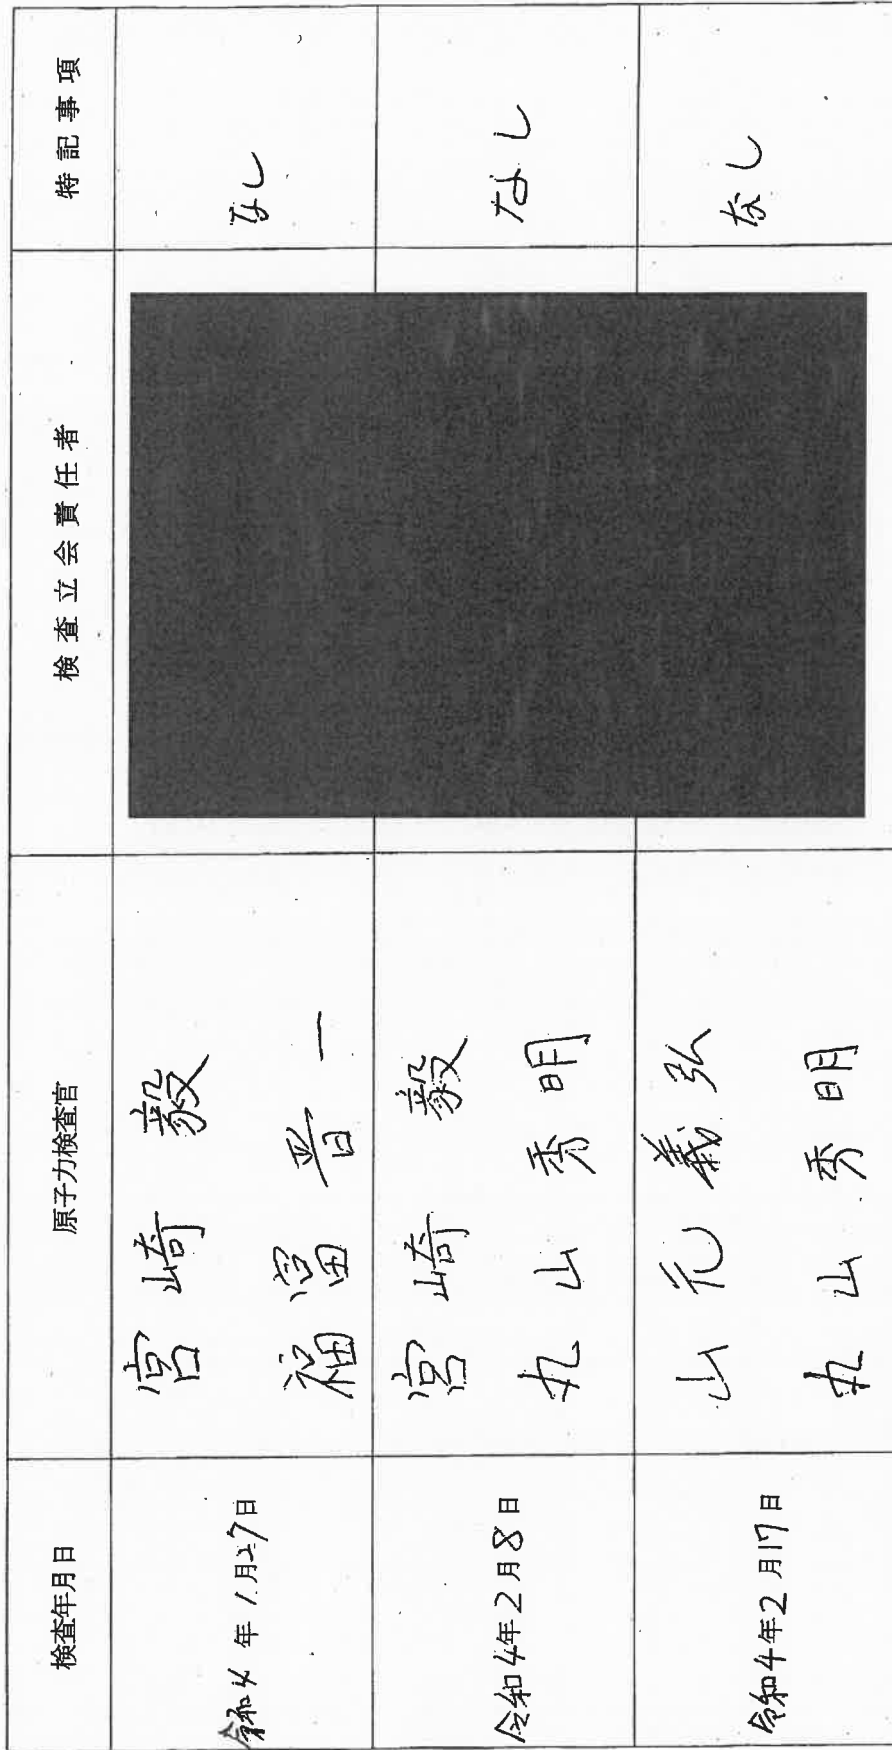 検査年月日
原子力検査官
検査立会責任者
特記事項
令和4年1月27日
宮崎 毅
福留 晋一
なし
令和4年2月8日
宮崎 毅
丸山 秀明
なし
令和4年2月17日
山元義弘
丸山 秀明
なし